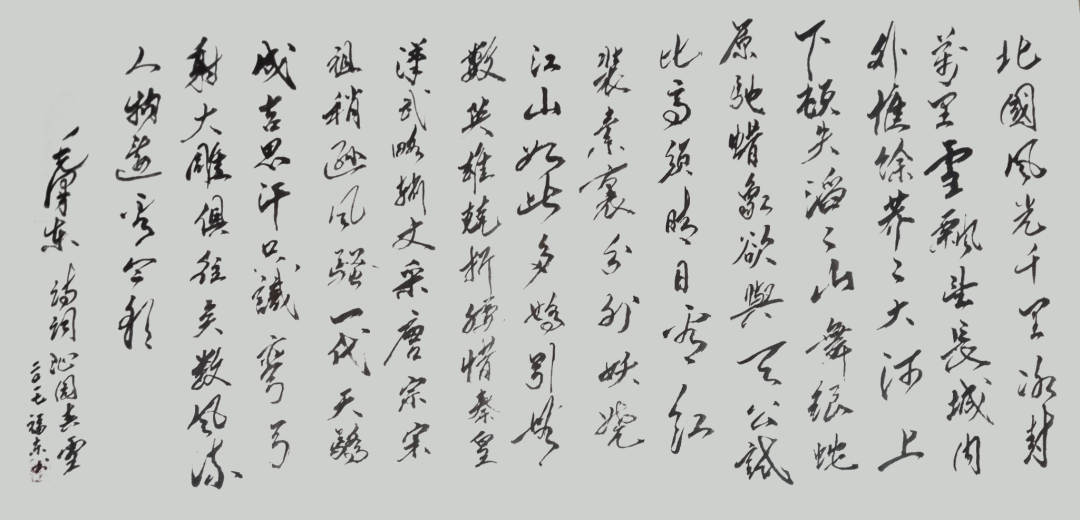 北國风光千里冰封
萬里雪飄望長城内
外惟餘莽々大河上
下頓失滔々山舞銀蛇
原馳蜡象欲與天公試
比高須晴日看紅
裝素裹分外妖嬈
江山如此多嬌引無
數英雄競折腰惜秦皇
漢武略輸文采唐宗宋
祖稍遜风騷一代天驕
成吉思汗只識彎弓
射大雕俱往矣數风流
人物還看今朝
毛澤東 詩詞沁園春雪
二〇一七 福東书